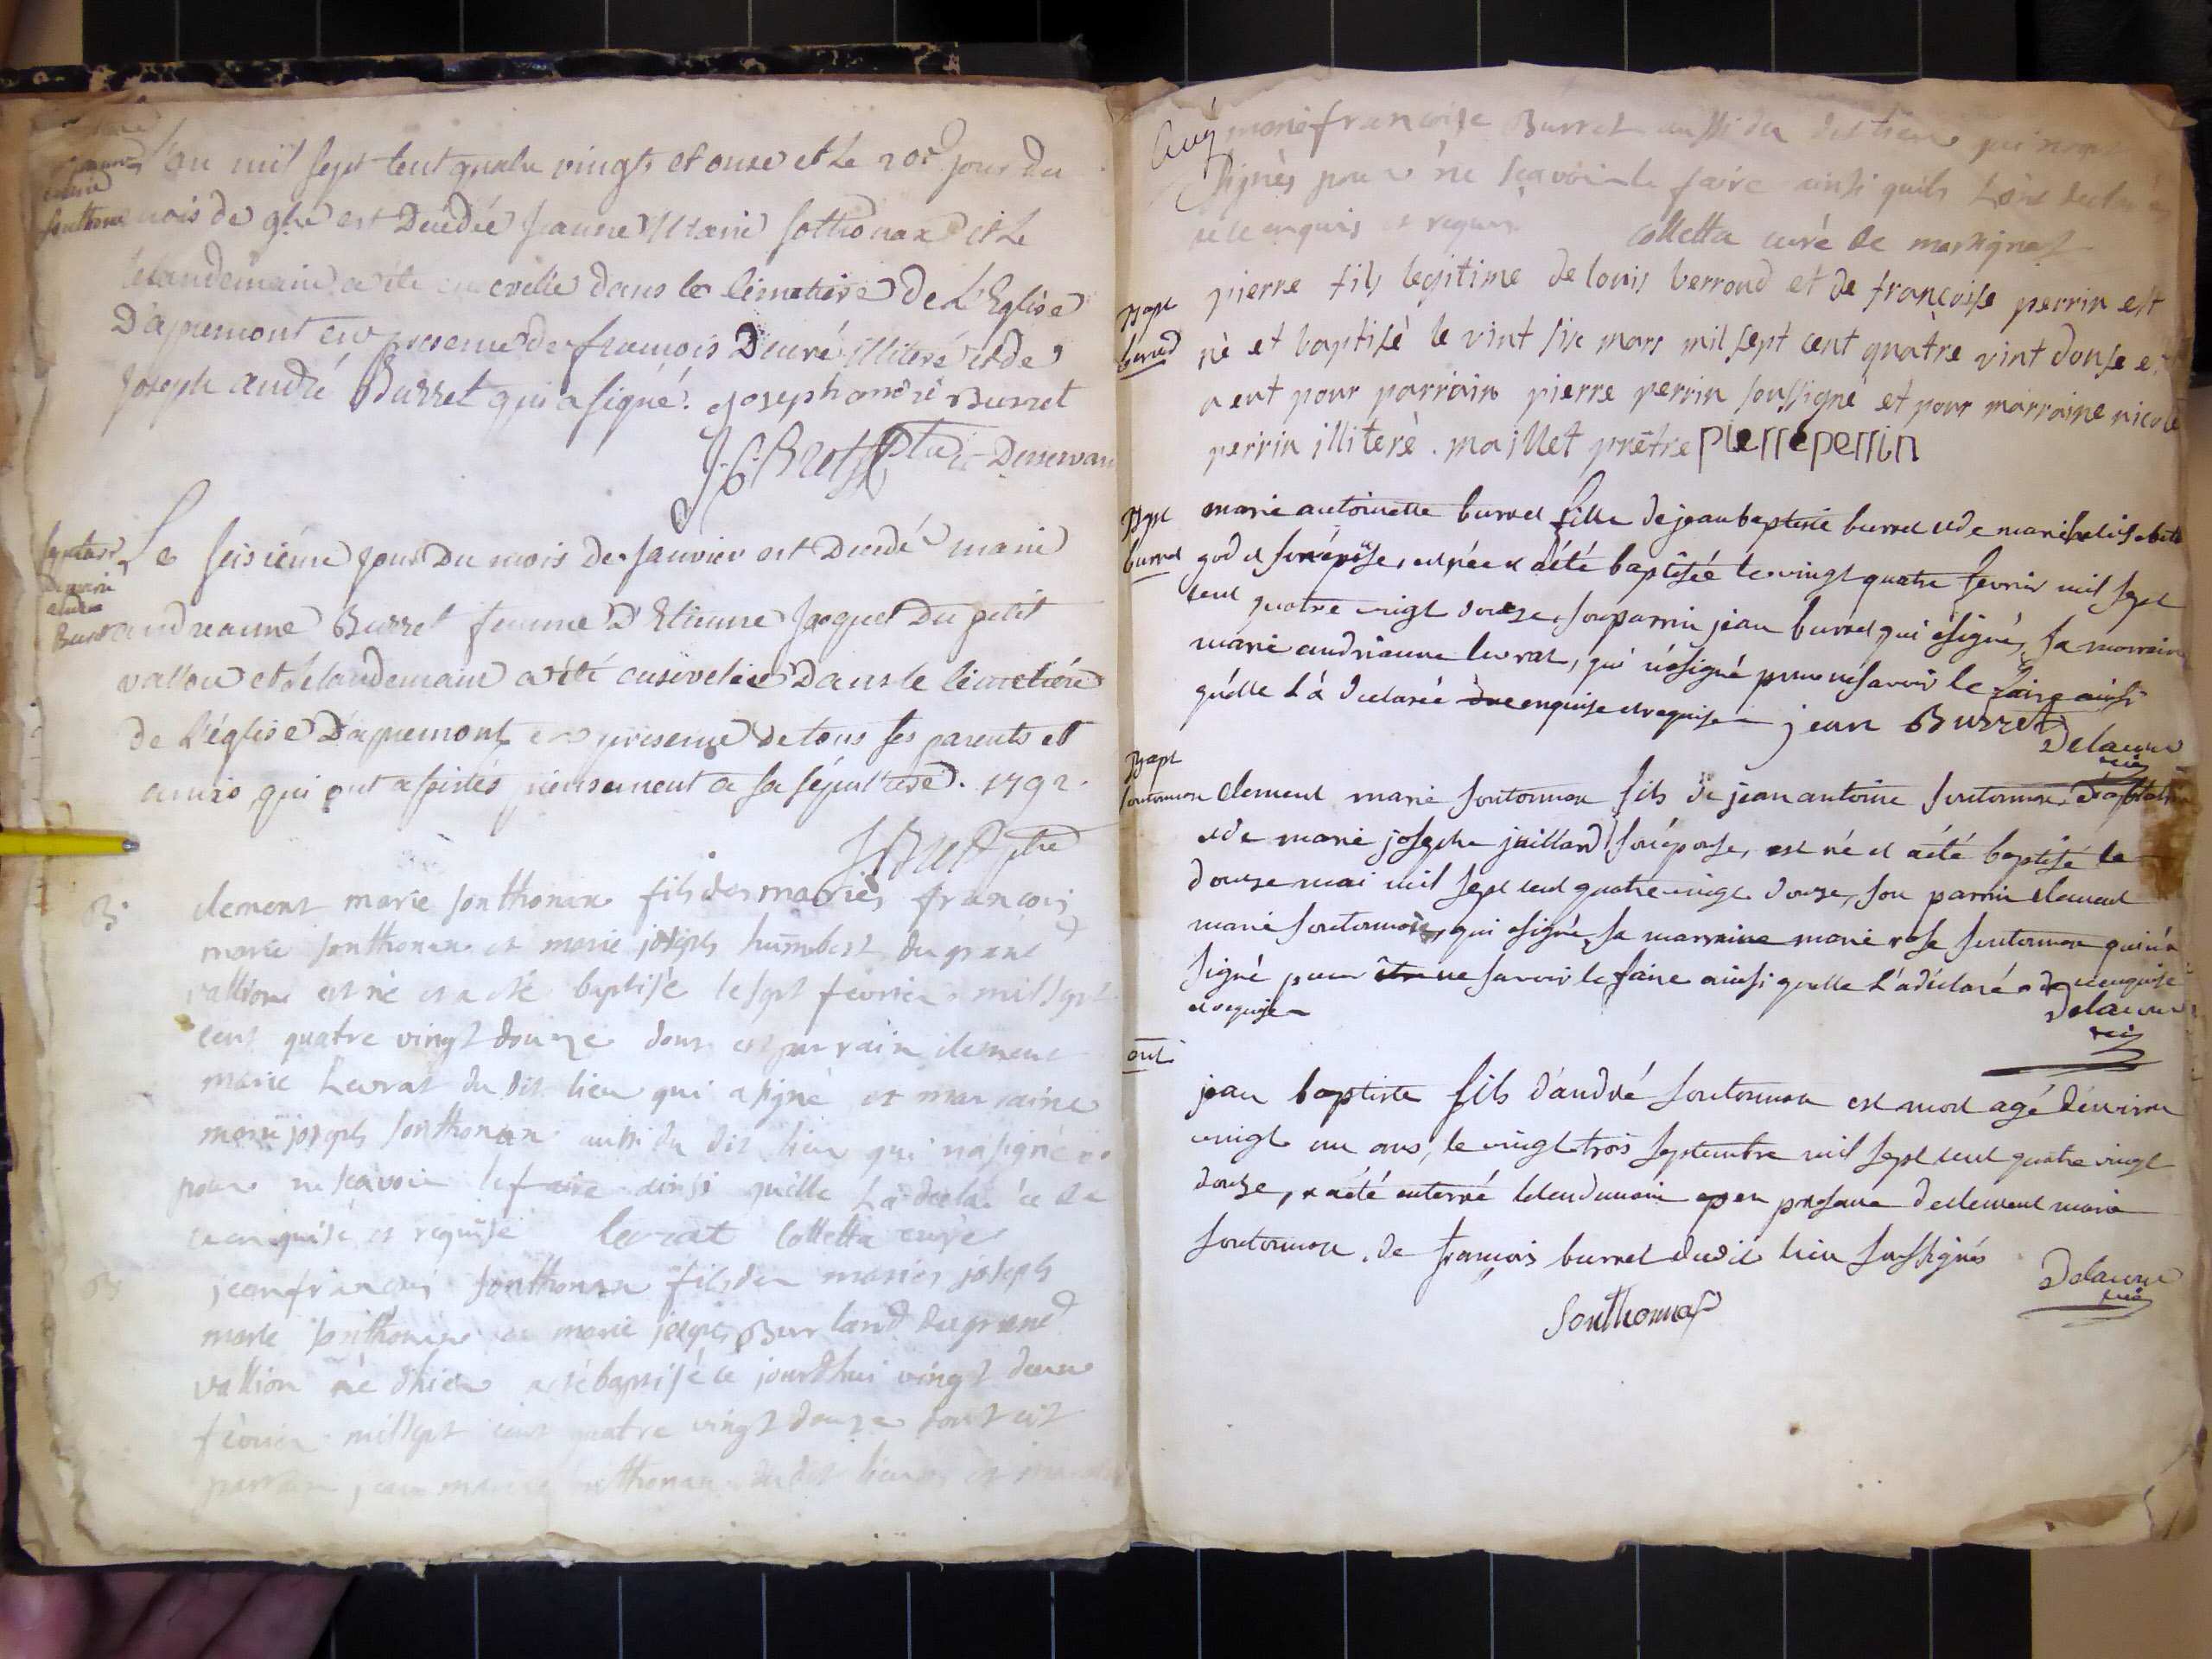 L'an mil sept cent quatre vingts et onze et le 20e jour du
mois de 9bre est Décédée Jeanne Marie Sothonax et le
lelandemain a été ensevelie dans le cimetiere De L'Eglise
D'apremont en presence de francois Ducré illiteré et de
Joseph andré Burret qui a signé. joseph andré Burret
Le seisiéme jour Du mois de Janvier est Decedé marie
andreanne Burret femme d'Etienne Jacquet Du petit
vallon et le landemain a été ensevelie Dans le cimetiére
de L'église D'apremont en presence de tous ses parents et
amis qui ont assistés pieusement a sa sépulture. 1792.
B.
clement marie sonthonax fils des mariés francois
marie sonthonax et marie joseph humbert du grand
vallion est né et a eté baptisé le sept fevrier mil sept
cent quatre vingt douze dont est parrain clement
marie Levrat du dit lieu qui a signé et marraine
marie joseph sonthonax aussi du dit lieu qui na signé
pour ne scavoir le faire ainsi quelle La declarée de
ce enquise et requise levrat Colletta curé
B
jean francois sonthonax fils des mariés joseph
marie sonthonax et marie joseph Burland du grand
vallion né d'hier a eté baptisé ce jourdhui vingt deux
fevrier mil sept cent quatre vingt douze dont est
parrain jean marie sonthonax du dit lieu et marraine
marie francoise Burret aussi du dit lieu qui nont
signés pour ne scavoir le faire ainsi quils Lont declarés
de ce enquis et requis Colletta curé de martignat
Bapt
berrod
pierre fils legitime de louis berroud et de francoise perrin est
né et baptisé le vint six mars mil sept cent quatre vint douse et
a eut pour parrain pierre perrin soussigné et pour marraine nicole
perrin illiteré. maillet prêtre pierre perrin
Bapt
burret
marie antoinette burret fille de jean baptiste burret et de marie
god et son épouse, est née et a été baptisée le vingt quatre fevrier mil sept
cent quatre vingt douze, son parrin jean burret qui a signé, sa marraine
marie andrianne levrat, qui n'a signé pour ne savoir le faire ainsi
qu'elle L'a declarée de enquise et requise jean Burret
Delacour
Bapt
soutonnax
clement marie soutonnax fils de jean antoine soutonnax
et de marie josephe juillard son épouse, est né et a été baptisé le
douze mai mil sept cent quatre vingt douze, son parrin clement
marie soutonnax, qui a signé, sa marraine marie rose soutonnax qui n'a
signé pour ne savoir le faire ainsi quelle L'a déclaré de ce enquise
et requise Delacour
jean baptiste fils d'andré soutonnax est mort agé d'environ
vingt un ans, le vingt trois septembre mil sept cent quatre vingt
douze, et a été enterré lelendemain en presence de clement marie
soutonnax, de francois burret dudit lieu soussignés
Delacour
Sonthonnax